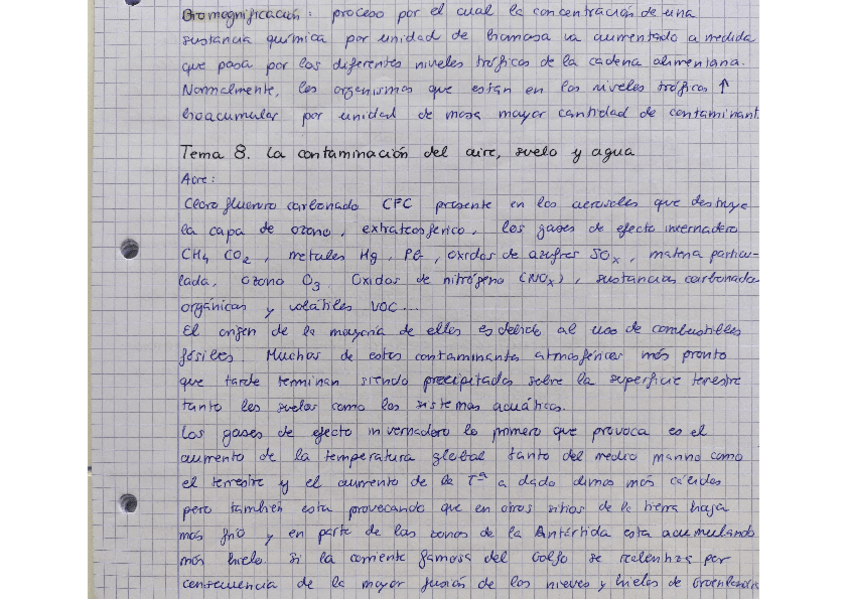 Biomagnificación: proceso por el cual la concentración de una
sustancia química por unidad de biomasa va aumentado a medida
que pasa por los diferentes niveles tróficos de la cadena alimentaria.
Normalmente, los organismos que están en los niveles tróficos ↑
bioacumular por unidad de masa mayor cantidad de contaminant
Tema 8. La contaminación del aire, suelo y agua
Aire:
Cloro fluoruro carbonado CFC presente en los aerosoles que destruye
la capa de ozono, extratosférico, los gases de efecto invernadero
CH4 CO2, metales Hg, Pb, oxidos de azufres SOx, materia particu-
lada, ozono O3. Oxidos de nitrógeno (NOx), sustancias carbonada
orgánicas y volátiles VOC...
El origen de la mayoría de ellos es debido al uso de combustibles
fósiles. Muchos de estos contaminantes atmosféricos más pronto
que tarde terminan siendo precipitados sobre la superficie terrestre
tanto los suelos como los sistemas acuáticos.
Los gases de efecto invernadero lo primero que provoca es el
aumento de la temperatura global tanto del medio marino como
el terrestre y el aumento de la Tª a dado climas más cálidos
pero también esta provocando que en otros sitios de la tierra haya
más frío y en parte de las zonas de la Antártida esta acumulando
más hielo. Si la corriente famosa del Golfo se ralentiza por
consecuencia de la mayor fusión de los nieves y hielos de Groenlandia